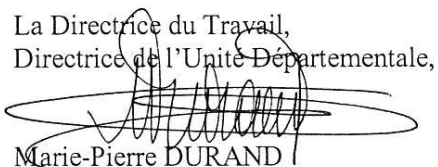 La Directrice du Travail,
Directrice de l'Unité Départementale,
Marie-Pierre DURAND